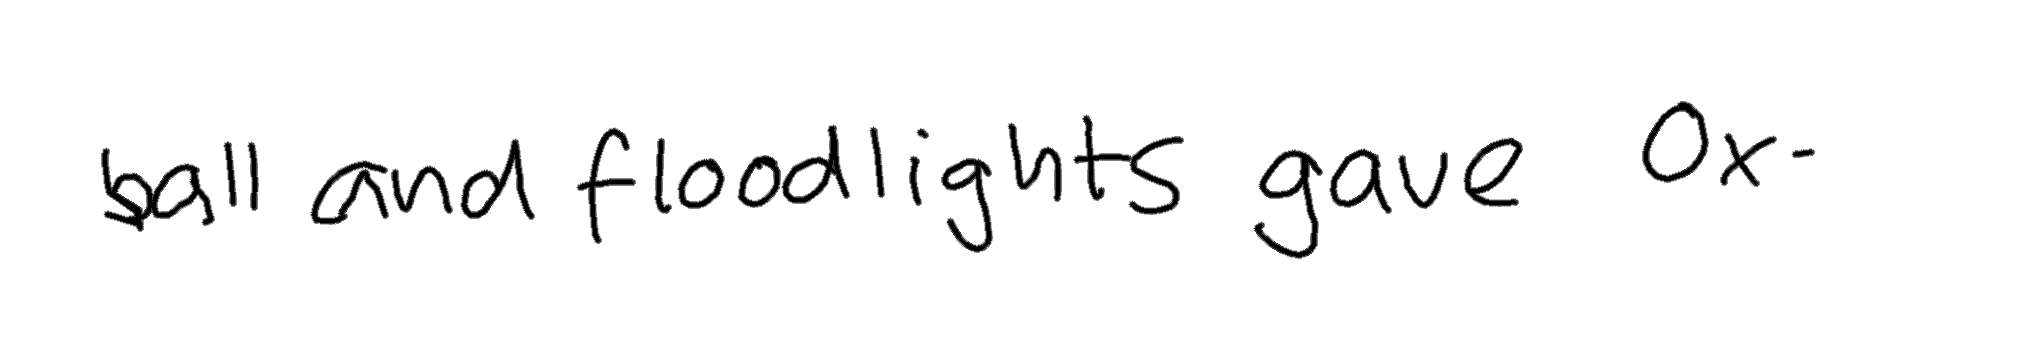 ball and floodlights gave Ox-